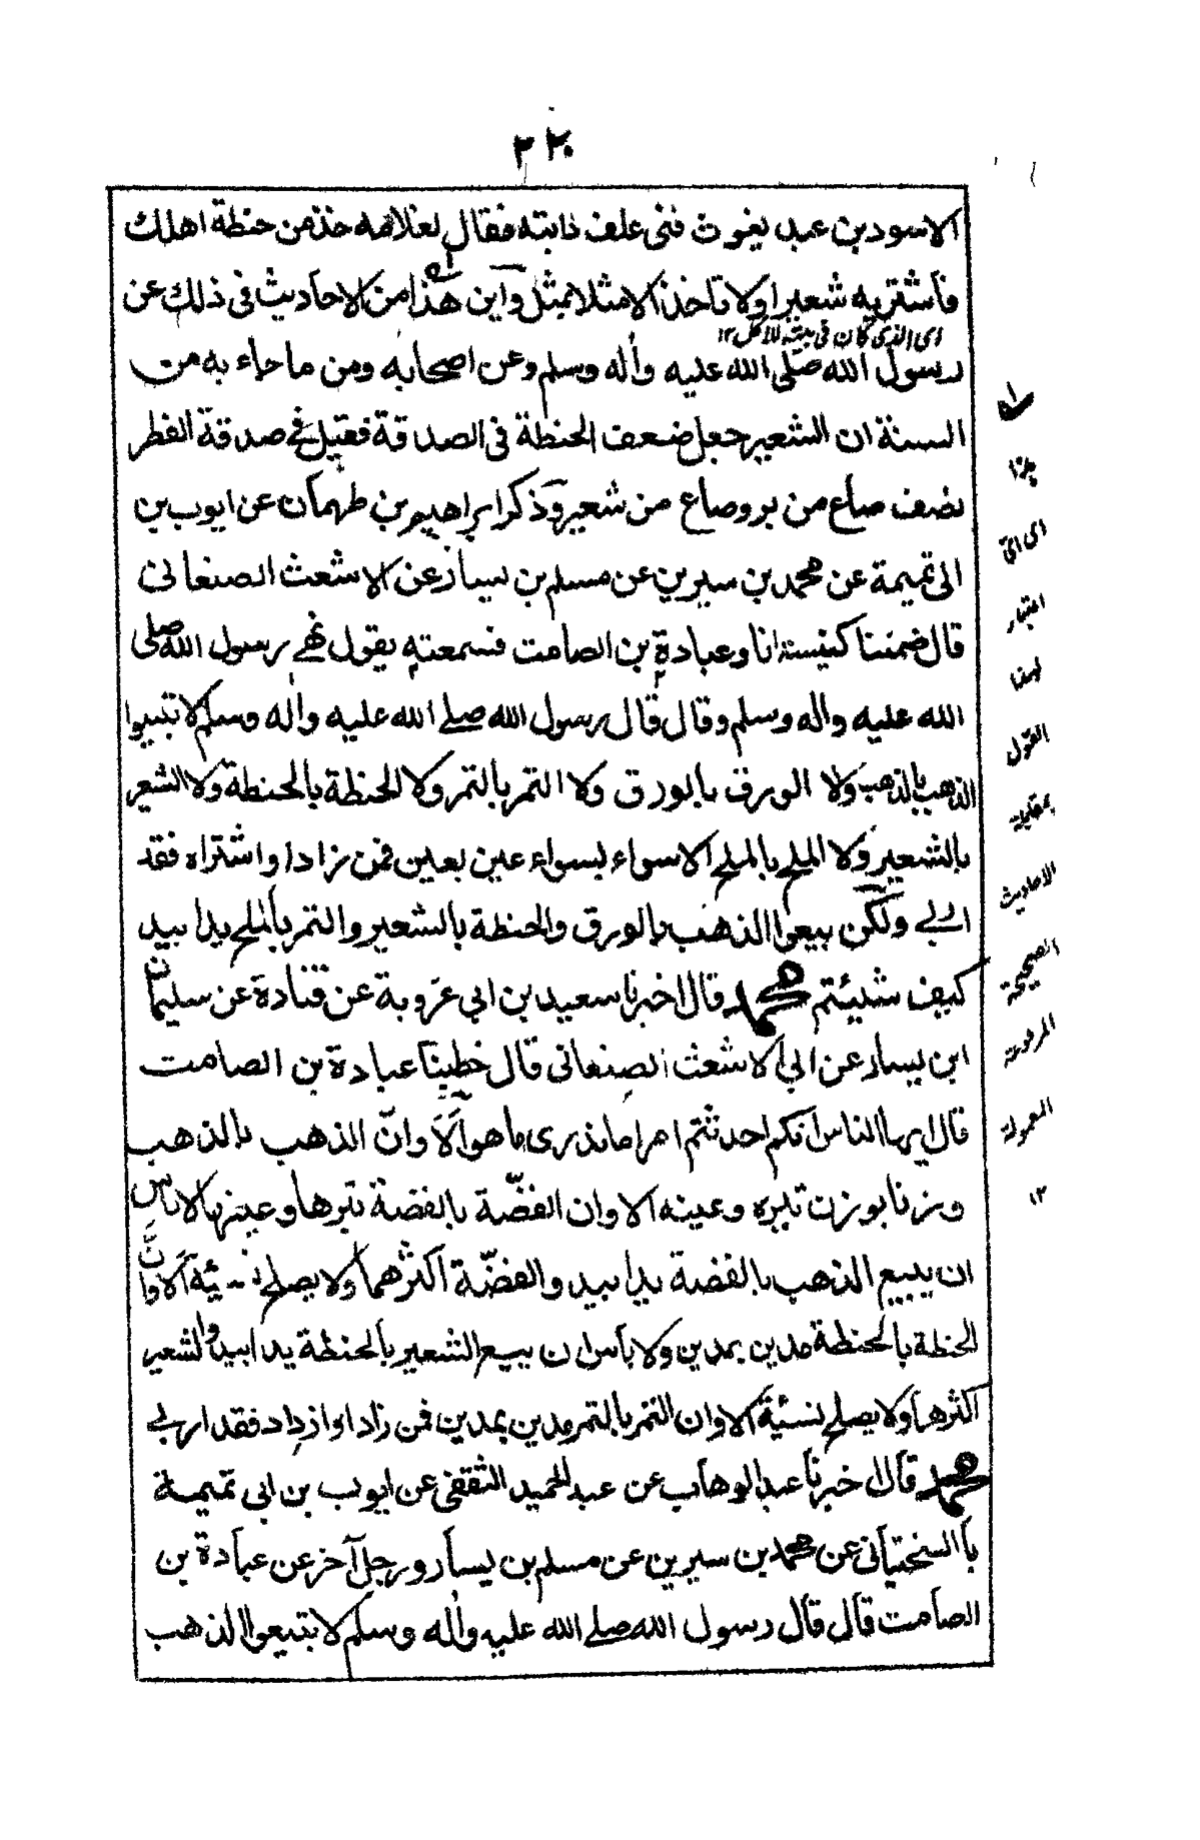 ٢٢٠
الاسود بن عبد يغوث فنى علف دابته فقال لغلامه خذ من حنطة اهلك
فاشتر به شعيرا ولا تاخذ الا مثلا بمثل واين هذا من الاحاديث فى ذلك عن
اى الذى كان فى بيته للاكل ١٢
رسول الله صلى الله عليه واله وسلم وعن اصحابه ومن ما جاء به من
السنة ان الشعير جعل ضعف الحنطة فى الصدقة فقيل فے صدقة الفطر
نصف صاع من بر وصاع من شعير وذكر ابراهيم بن طهمان عن ايوب بن
ابى تميمة عن محمد بن سيرين عن مسلم بن يسار عن الاشعث الصنعانى
قال ضمننا كنيسة انا وعبادة بن الصامت فسمعته يقول نهے رسول الله صلى
الله عليه واله وسلم وقال قال رسول الله صلے الله عليه واله وسلم لا تبيعوا
الذهب بالذهب ولا الورق بالورق ولا التمر بالتمر ولا الحنطة بالحنطة ولا الشعير
بالشعير ولا الملح بالملح الا سواء بسواء عين بعين فمن زاد او اشتراه فقد
اربے ولكن بيعوا الذهب بالورق والحنطة بالشعير والتمر بالملح يدا بيد
كيف شيئتم محمد قال اخبرنا سعيد بن ابي عروبة عن قتادة عن سليمان
ابن يسار عن ابي الاشعث الصنعانى قال خطبنا عبادة بن الصامت
قال ايها الناس انكم احدثتم امرا ما ندرى ما هو ألا وانّ الذهب بالذهب
وزنا بوزن تبره وعينه الا وان الفضّة بالفضة تبرها وعينها لا باس
ان يبيع الذهب بالفضة يدا بيد والفضّة اكثرهما ولا يصلح نسيئة ألا وانّ
الحنطة بالحنطة مدين بمدين ولا باس ان يبيع الشعير بالحنطة يدا بيد والشعير
اكثرهما ولا يصلح نسئية الا وان التمر بالتمر مدين بمدين فمن زاد او ازداد فقد اربے
محمد قال اخبرنا عبد الوهاب عن عبد الحميد الثقفى عن ايوب بن ابى تميمة
باالسختيانى عن محمد بن سيرين عن مسلم بن يسار ورجل آخر عن عبادة بن
الصامت قال قال رسول الله صلے الله عليه واله وسلم لا تبيعوا الذهب
اى اىّ
اعتبار
لهذا
القول
بمقابلة
الاحاديث
الصحيحة
المرفوعة
المعمولة
١٢